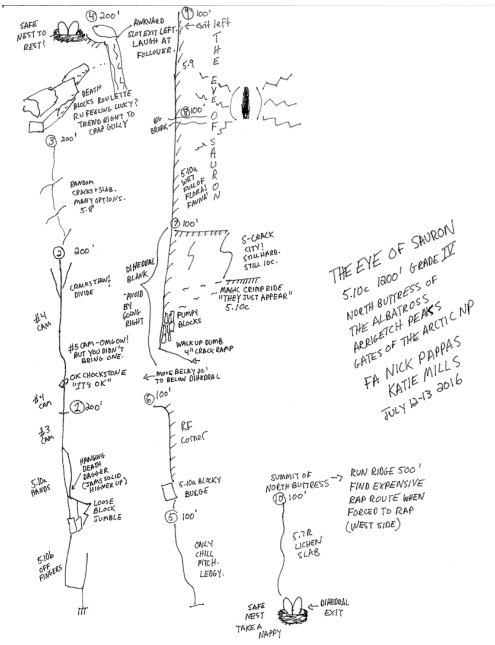 SAFE
NEST TO
REST!
4 200'
AWKWARD
SLOT EXIT LEFT.
LAUGH AT
FOLLOWER.
DEATH
BLOCKS ROULETTE
R U FEELING LUCKY?
TREND RIGHT TO
CRAP GULLY
3 200'
RANDOM
CRACKS + SLAB.
MANY OPTIONS.
5.8
2 200'
CRACKS THIN!
DIVIDE
#4
CAM
#5 CAM-OMGOW!
BUT YOU DIDN'T
BRING ONE.
OK CHOCKSTONE
"IT'S OK"
#4
CAM
1 200'
#3
CAM
HANGING
DEATH
DAGGER
(JAMS SOLID
HIGHER UP)
5.10a
HANDS
LOOSE
BLOCK
JUMBLE
5.10b
OFF
FINGERS
9 100'
exit left
5.9
THE EYE OF SAURON
8 100'
BIG
BROOK
5.10a
WET
FULL OF
FLORA!
FAUNA!
7 100'
DIHEDRAL
BLANK
-AVOID
BY
GOING
RIGHT
5-CRACK
CITY!
STILL HARD.
STILL 10C.
MAGIC CRIMP RIDE
"THEY JUST APPEAR"
5.10c
PUMPY
BLOCKS
WALK UP DUMB
4" CRACK RAMP
MOVE BELAY 30'
TO BELOW DIHEDRAL
6 100'
RF
Corner
5.10a BLOCKY
BULGE
5 100'
ONLY
CHILL
PITCH.
LEDGY.
THE EYE OF SAURON
5.10c 1200' GRADE IV
NORTH BUTTRESS OF
THE ALBATROSS
ARRIGETCH PEAKS
GATES OF THE ARCTIC NP
FA NICK PAPPAS
KATIE MILLS
JULY 12-13 2016
SUMMIT OF
NORTH BUTTRESS
10 100'
RUN RIDGE 500'
FIND EXPENSIVE
RAP ROUTE WHEN
FORCED TO RAP
(WEST SIDE)
5.7R
LICHEN
SLAB
SAFE
NEST
TAKE A
NAPPY
DIHEDRAL
EXIT